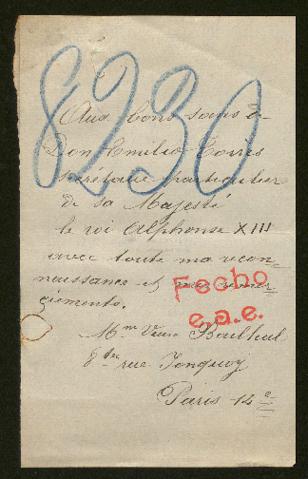 8230
Aux bons soins de
Don Emilio Torres
secrétaire particulier
de sa Majesté
le roi Alphonse XIII
avec toute ma recon
naissance et mes remer
ciements.
Fecho
e.a.e.
Mme Veuve
rue Jonquoy
Paris 14e